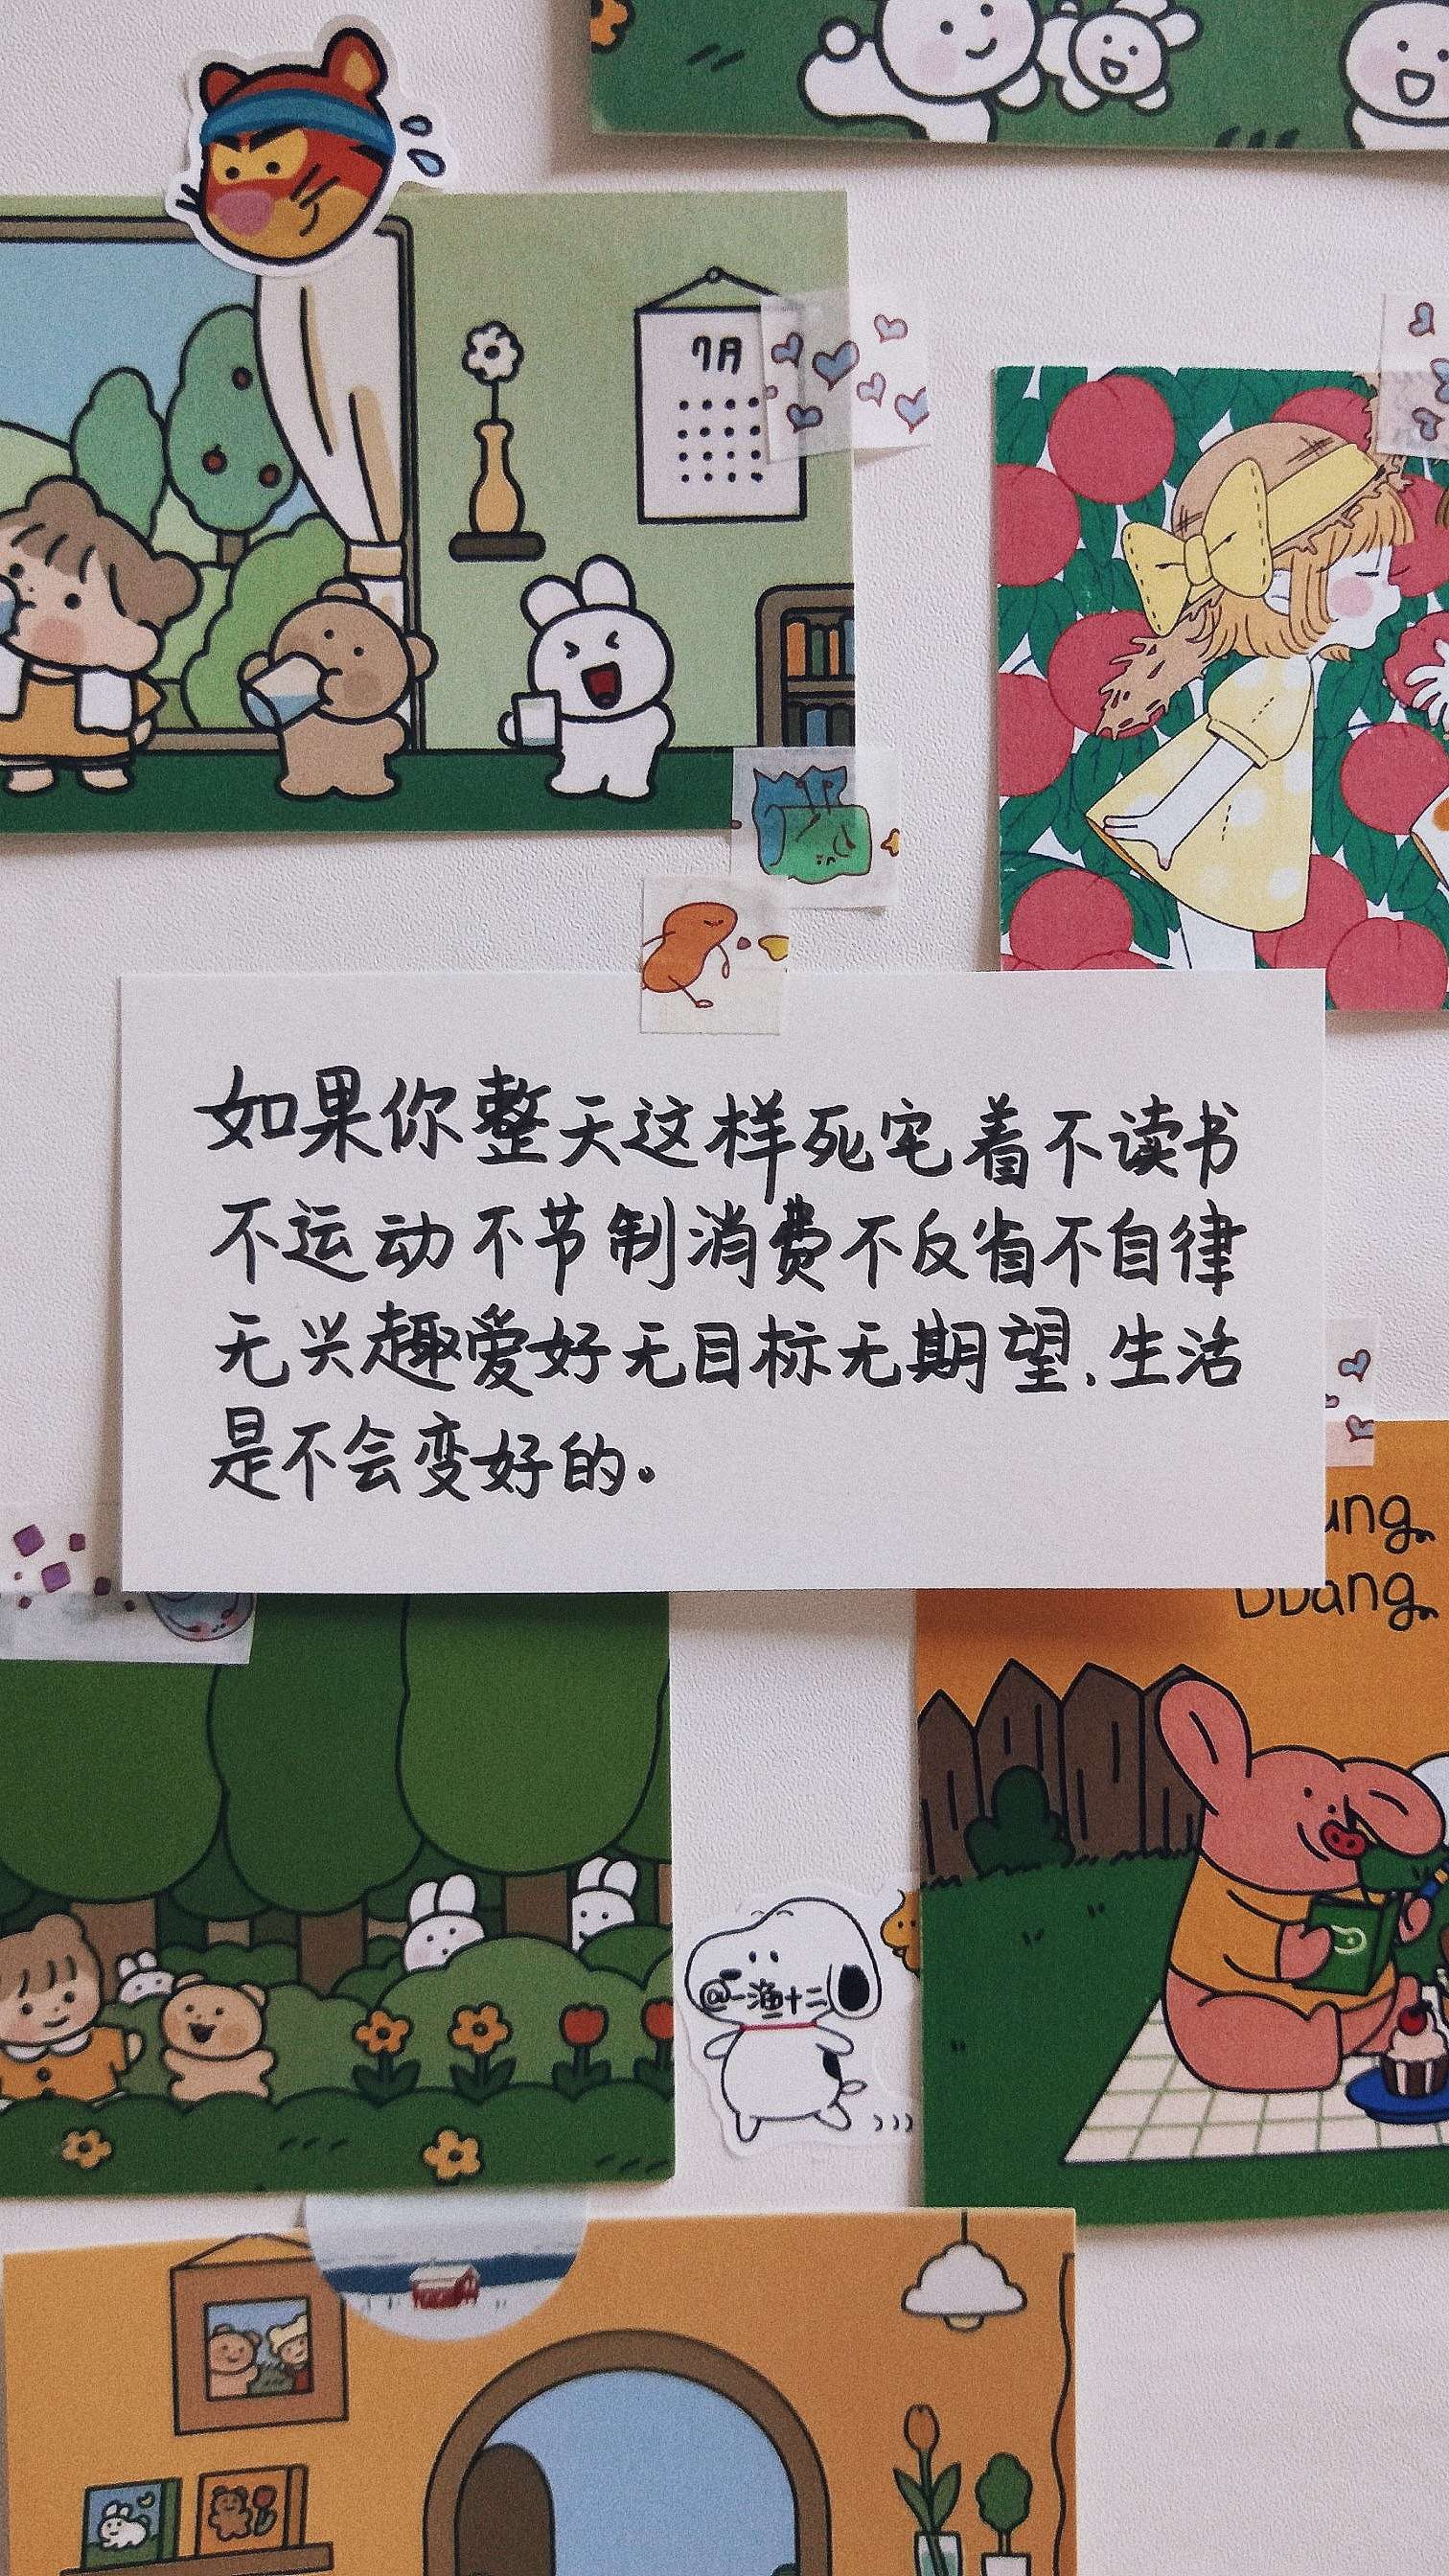 7月
如果你整天这样死宅着不读书
不运动不节制消费不反省不自律
无兴趣爱好无目标无期望、生活
是不会变好的。
ung
Dbang
@一渔十二